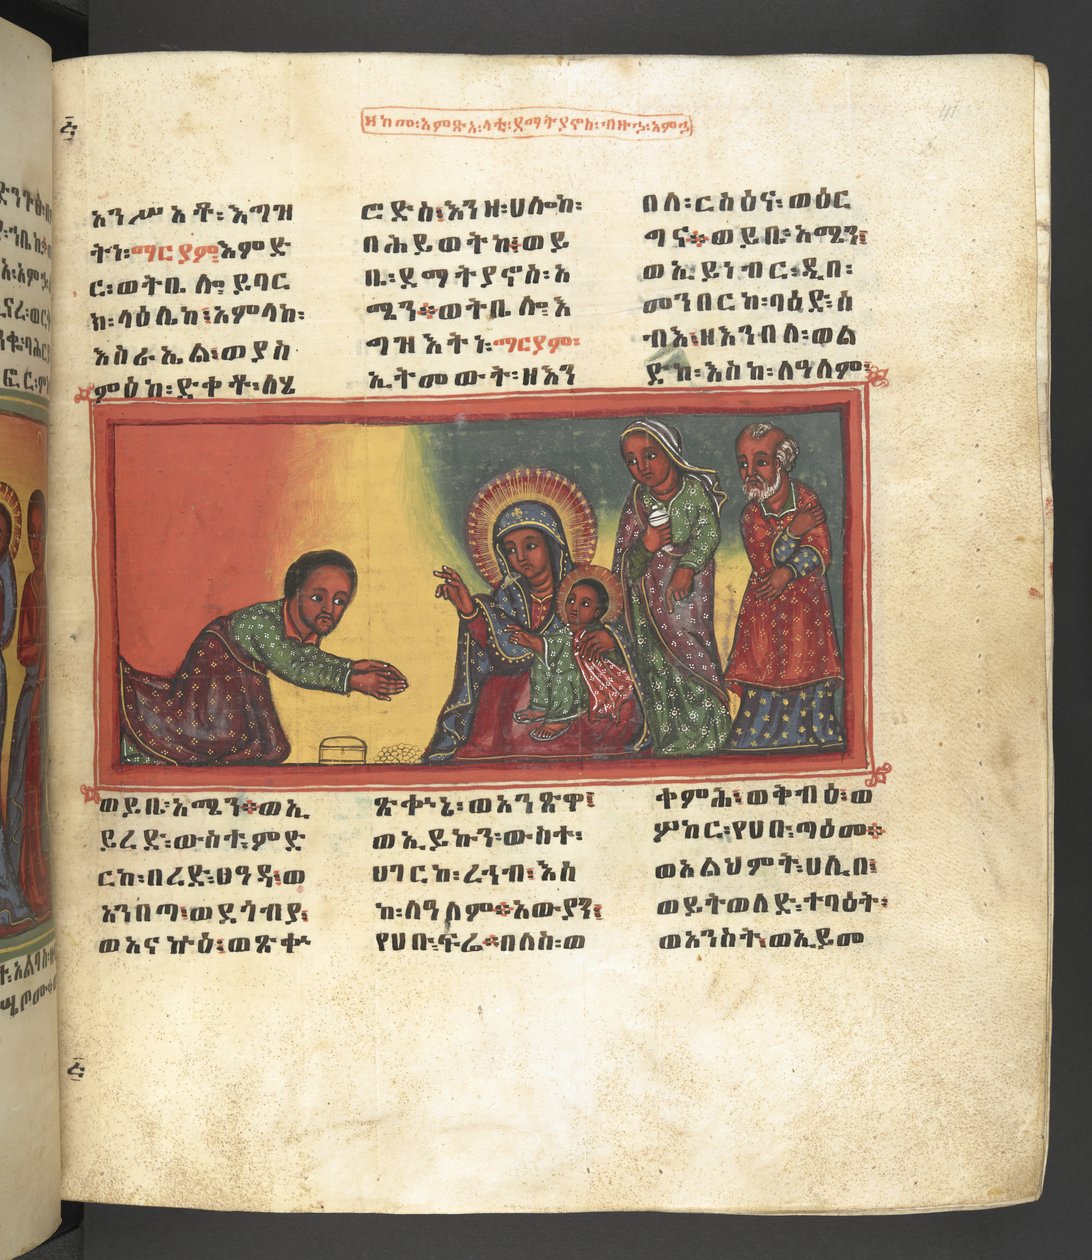 ዘከመ፡አምጽአ፡ላቲ፡ደማትያኖስ፡ብዙኃ፡አምኃ
አንሥአቶ፡እግዝ
ትነ፡ማርያም፡እምድ
ር፡ወትቤሎ፡ይባር
ክ፡ላዕሌከ፡አምላከ፡
እስራኤል፡ወያስ
ምዕከ፡ድቀቶ፡ለሄ
ሮድስ፡እንዘ፡ሀሎከ፡
በሕይወትከ፡ወይ
ቤ፡ደማትያኖስ፡አ
ሜን፡ወትቤሎ፡እ
ግዝእትነ፡ማርያም፡
ኢትመውት፡ዘእን
በለ፡ርስዕና፡ወዕር
ግና፡ወይቤ፡አሜን፡
ወኢይነብር፡ዲበ፡
መንበርከ፡ባዕድ፡ሰ
ብእ፡ዘእንበለ፡ወል
ድከ፡እስከ፡ለዓለም፡
ወይቤ፡አሜን፡ወኢ
ይረድ፡ውስተ፡ምድ
ርከ፡በረድ፡ፀዓዳ፡ወ
አንበጣ፡ወደጎብያ፡
ወአናኵዕ፡ወጽቀጥ
ጽቀጥኔ፡ወአንጽዋ፡
ወኢይኩን፡ውስተ፡
ሀገርከ፡ረኃብ፡እስ
ከ፡ለዓለም፡አውያን፡
የሀቡ፡ፍሬ፡በለስ፡ወ
ቀምሕ፡ወቅብዕ፡ወ
ሦከር፡የሀቡ፡ጣዕመ፡
ወአልህምት፡ሀሊበ፡
ወይትወለድ፡ተባዕት፡
ወአንስት፡ወኢይመ